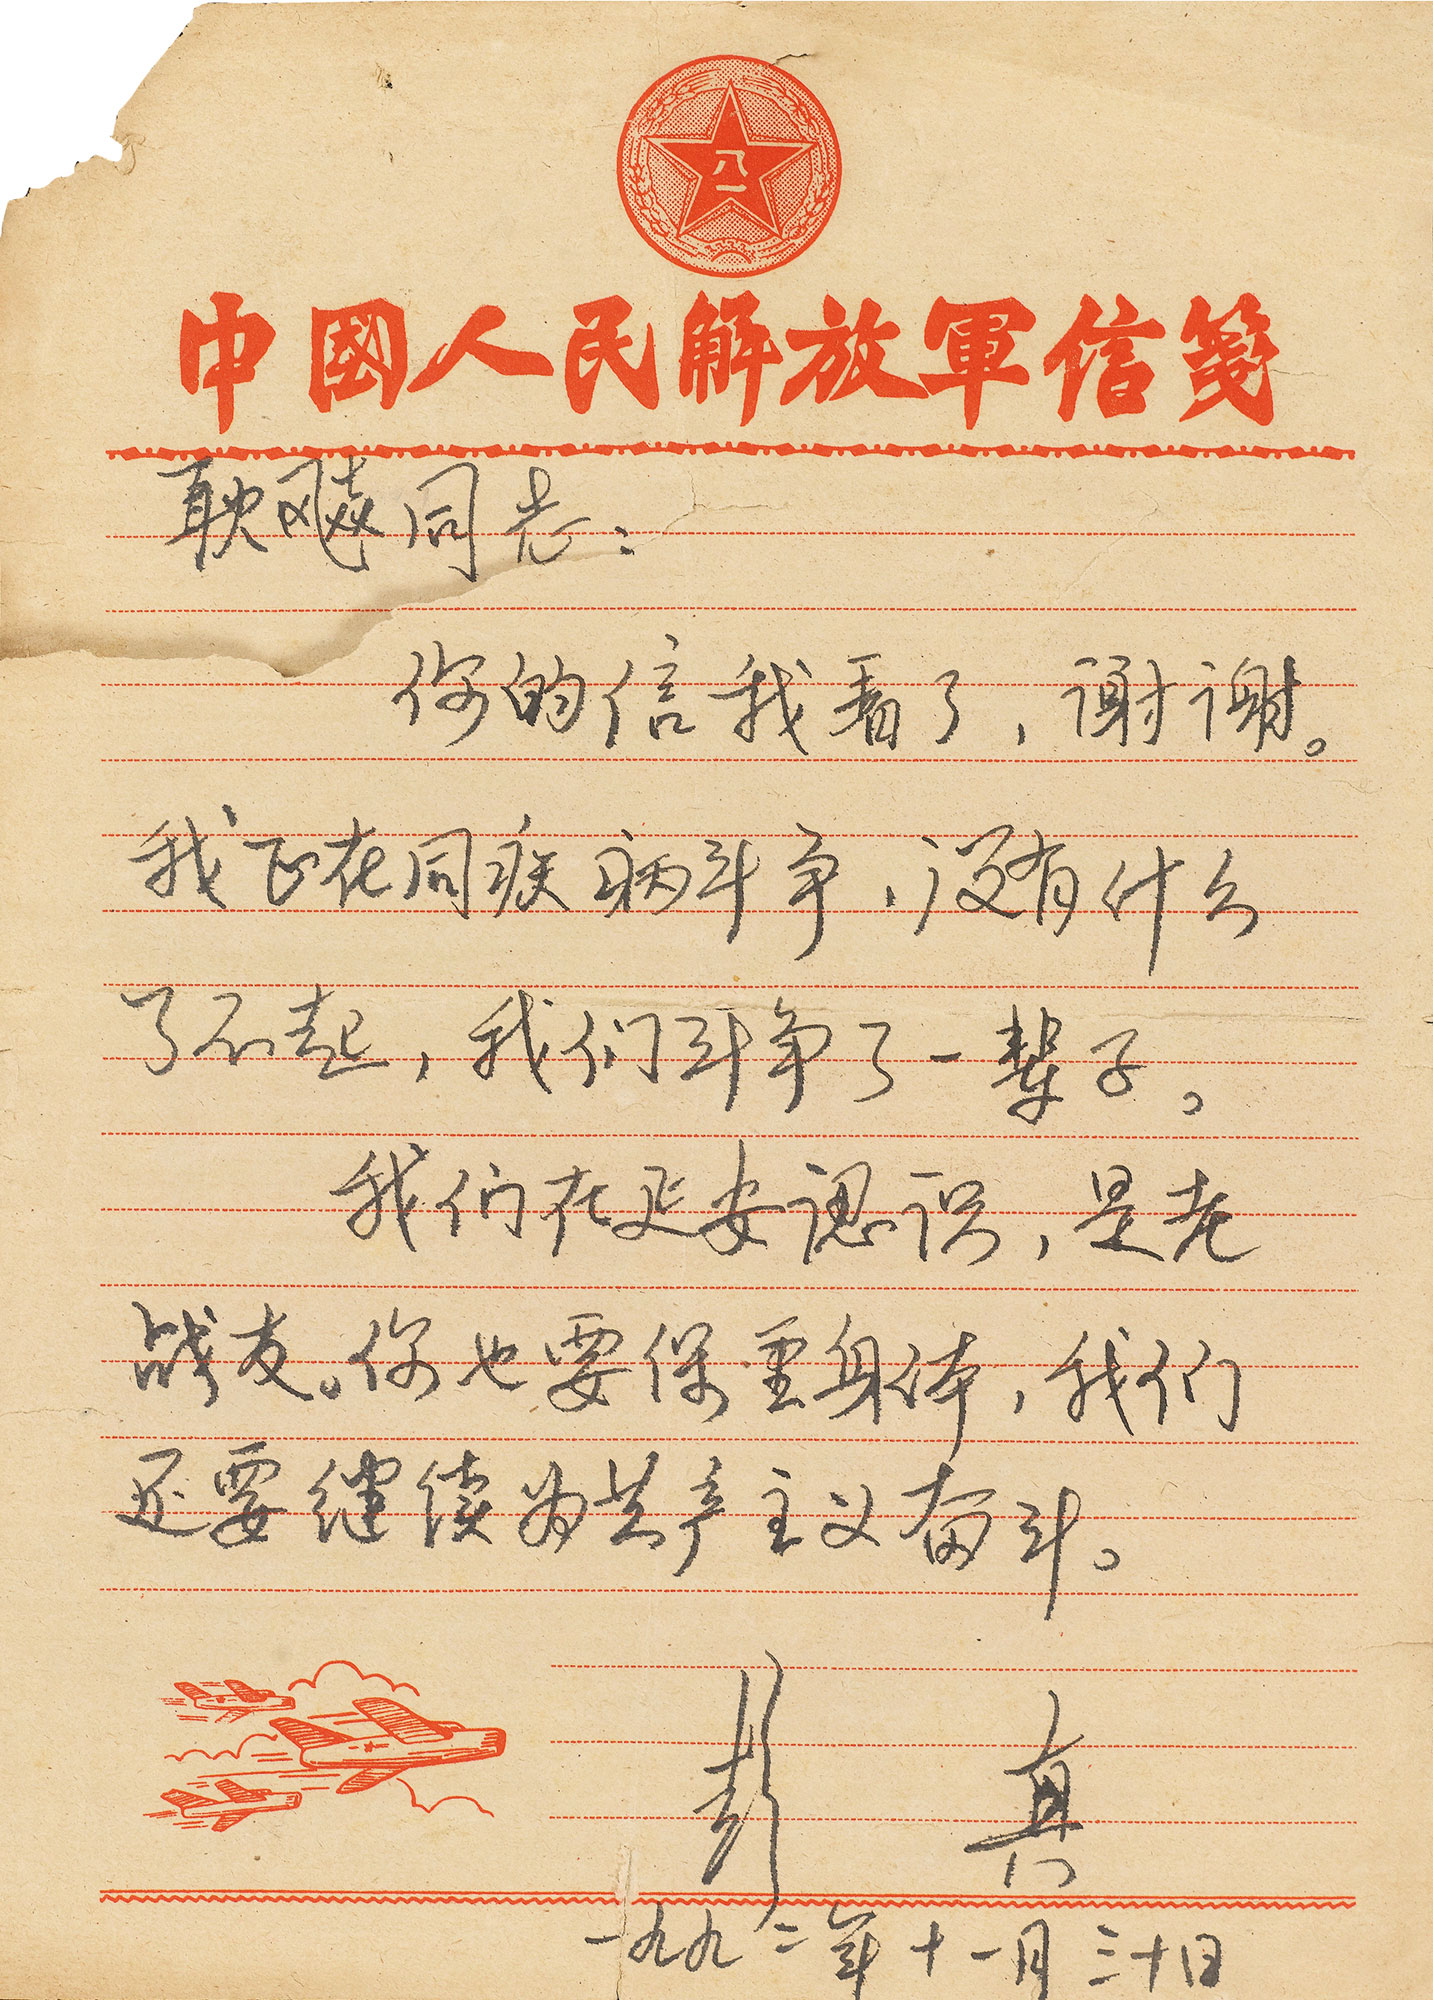 八一
中國人民解放軍信箋
耿飚同志：
你的信我看了，谢谢。
我正在同疾病斗争，没有什么
了不起，我们斗争了一辈子。
我们在延安認识，是老
战友。你也要保重身体，我们
还要继续为共产主义奋斗。
彭真
一九九二年十一月三十日